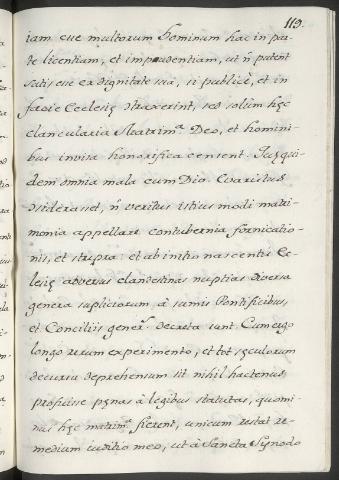 119.
iam eue multorum hominum hac in par-
te licentiam, et impudentiam, ut ñ putent
satis eue ex dignitate sua, si publicè, et in
facie Ecclesię contraxerint, sed solùm hęc
clancularia Matrim.ª Deo, et homini-
bus invisa honorifica censent. Hęc qui-
dem omnia mala cum Diu. Evaristus
considerasset, ñ veritus istius modi matri-
monia appellare contubernia fornicatio-
nis, et stupra: et ab initio nascentis Ec-
lesię adversus clandestinas nuptias diversa
genera supliciorum à sumis Pontificibus,
et Conciliis gener.s decreta sunt. Cum ergo
longo rerum experimento, et tot sęculorum
decursu deprehensum sit nihil hactenus
profuisse pęnas à legibus statutas, quomi-
nus hęc matrim.ª fierent, unicum restat re-
medium iuditio meo, ut à Sancta Synodo